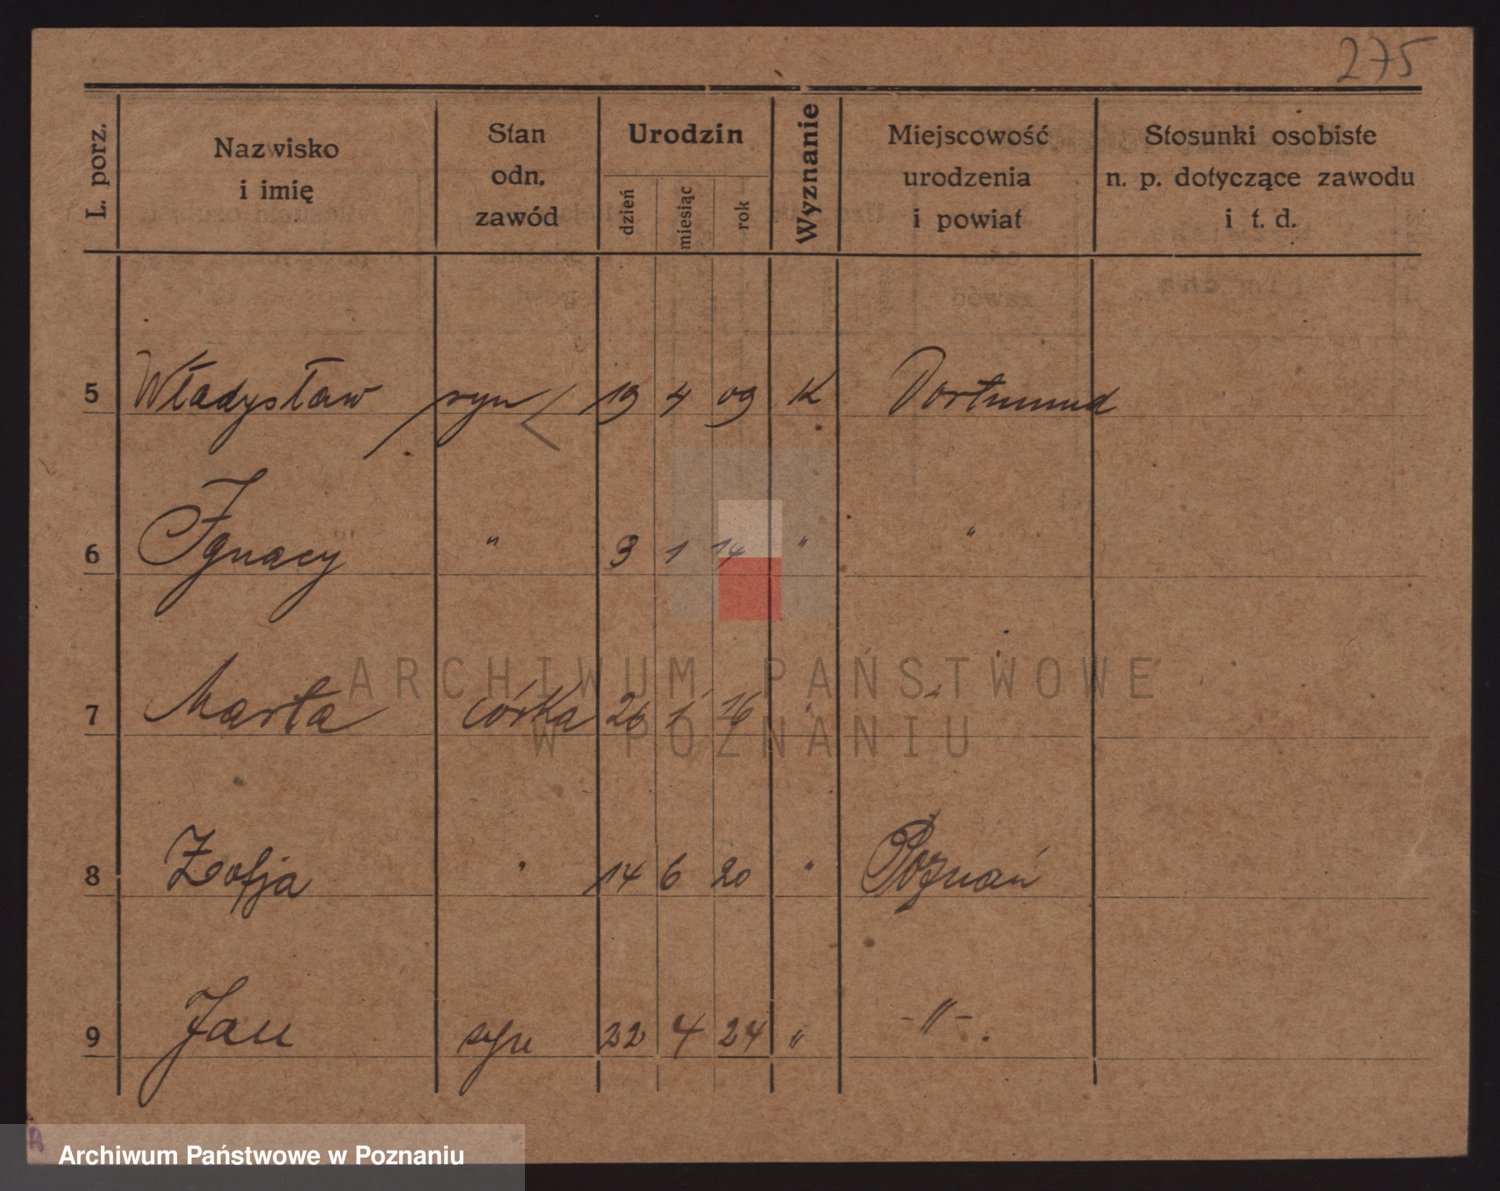 275
L. porz.
Nazwisko
i imię
Stan
odn.
zawód
Urodzin
dzień
miesiąc
rok
Wyznanie
Miejscowość
urodzenia
i powiat
Stosunki osobiste
n. p. dotyczące zawodu
i t. d.
5 Władysław syn 19 4 09 K Dortmund
6 Ignacy " 3 1 14 " "
7 Marta córka 26 1 16 " "
8 Zofja " 14 6 20 " Poznań
9 Jan syn 22 4 24 " -"-
ARCHIWUM PAŃSTWOWE
W POZNANIU
Archiwum Państwowe w Poznaniu